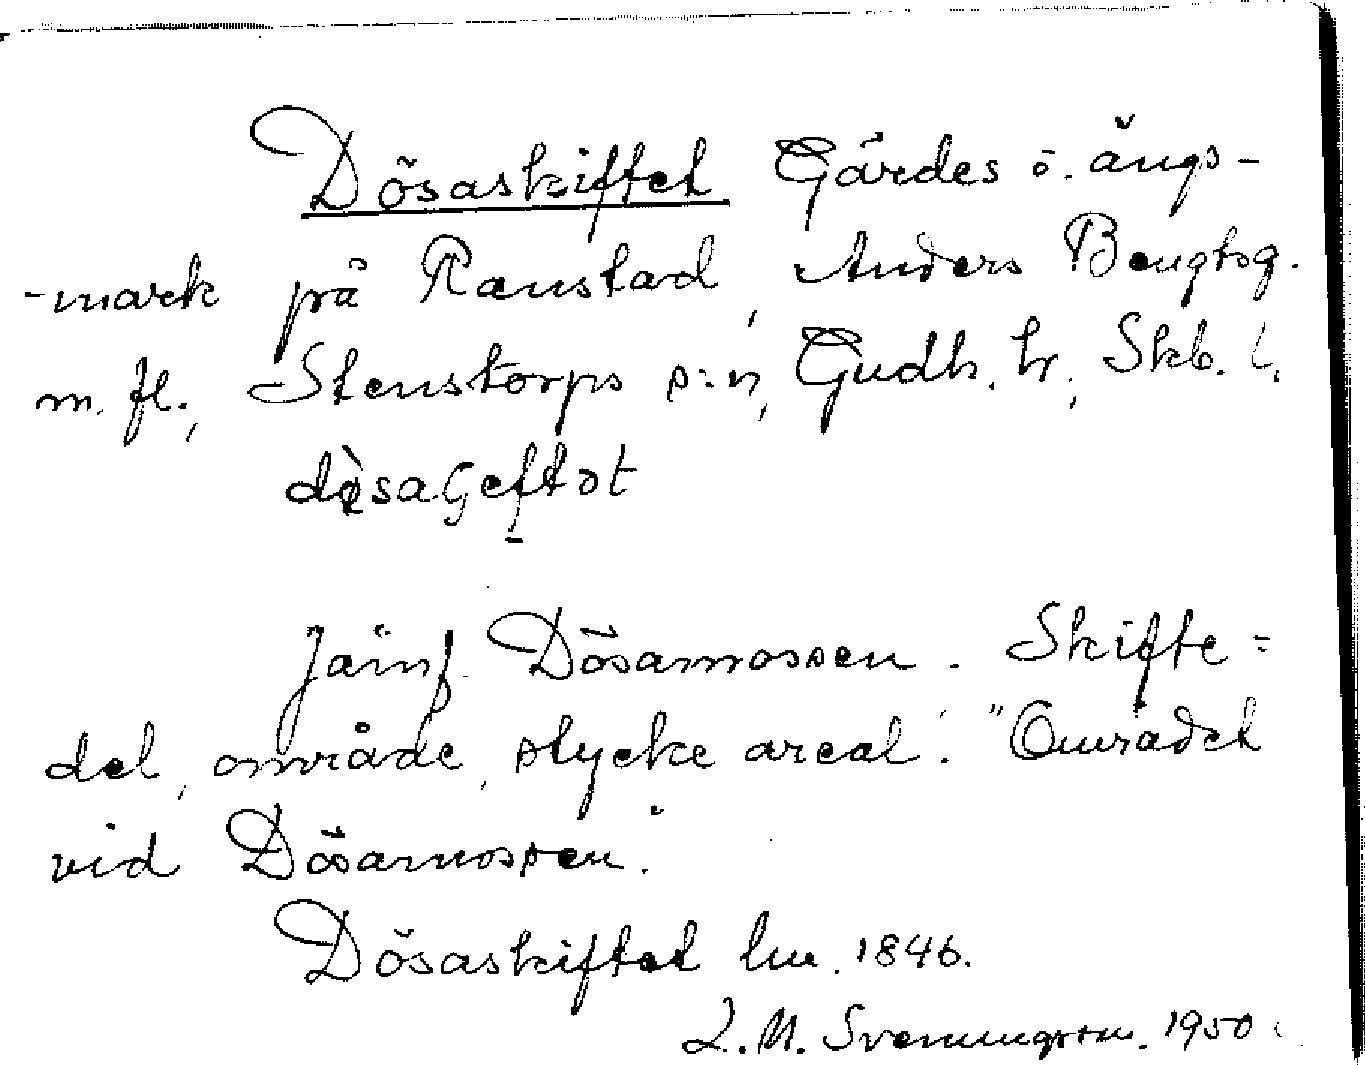 Dösaskiftet Gärdes o. ängs-
-mark på Ranstad, Anders Bengtsg.
m. fl., Stenstorps s:n, Gudh. hr, Skb. l.
Jämf. Dösamossen. Skifte =
del, område, stycke areal. "Området
vid Dösamossen".
Dösaskiftet lm. 1846.
L.M. Svenungsson. 1950.